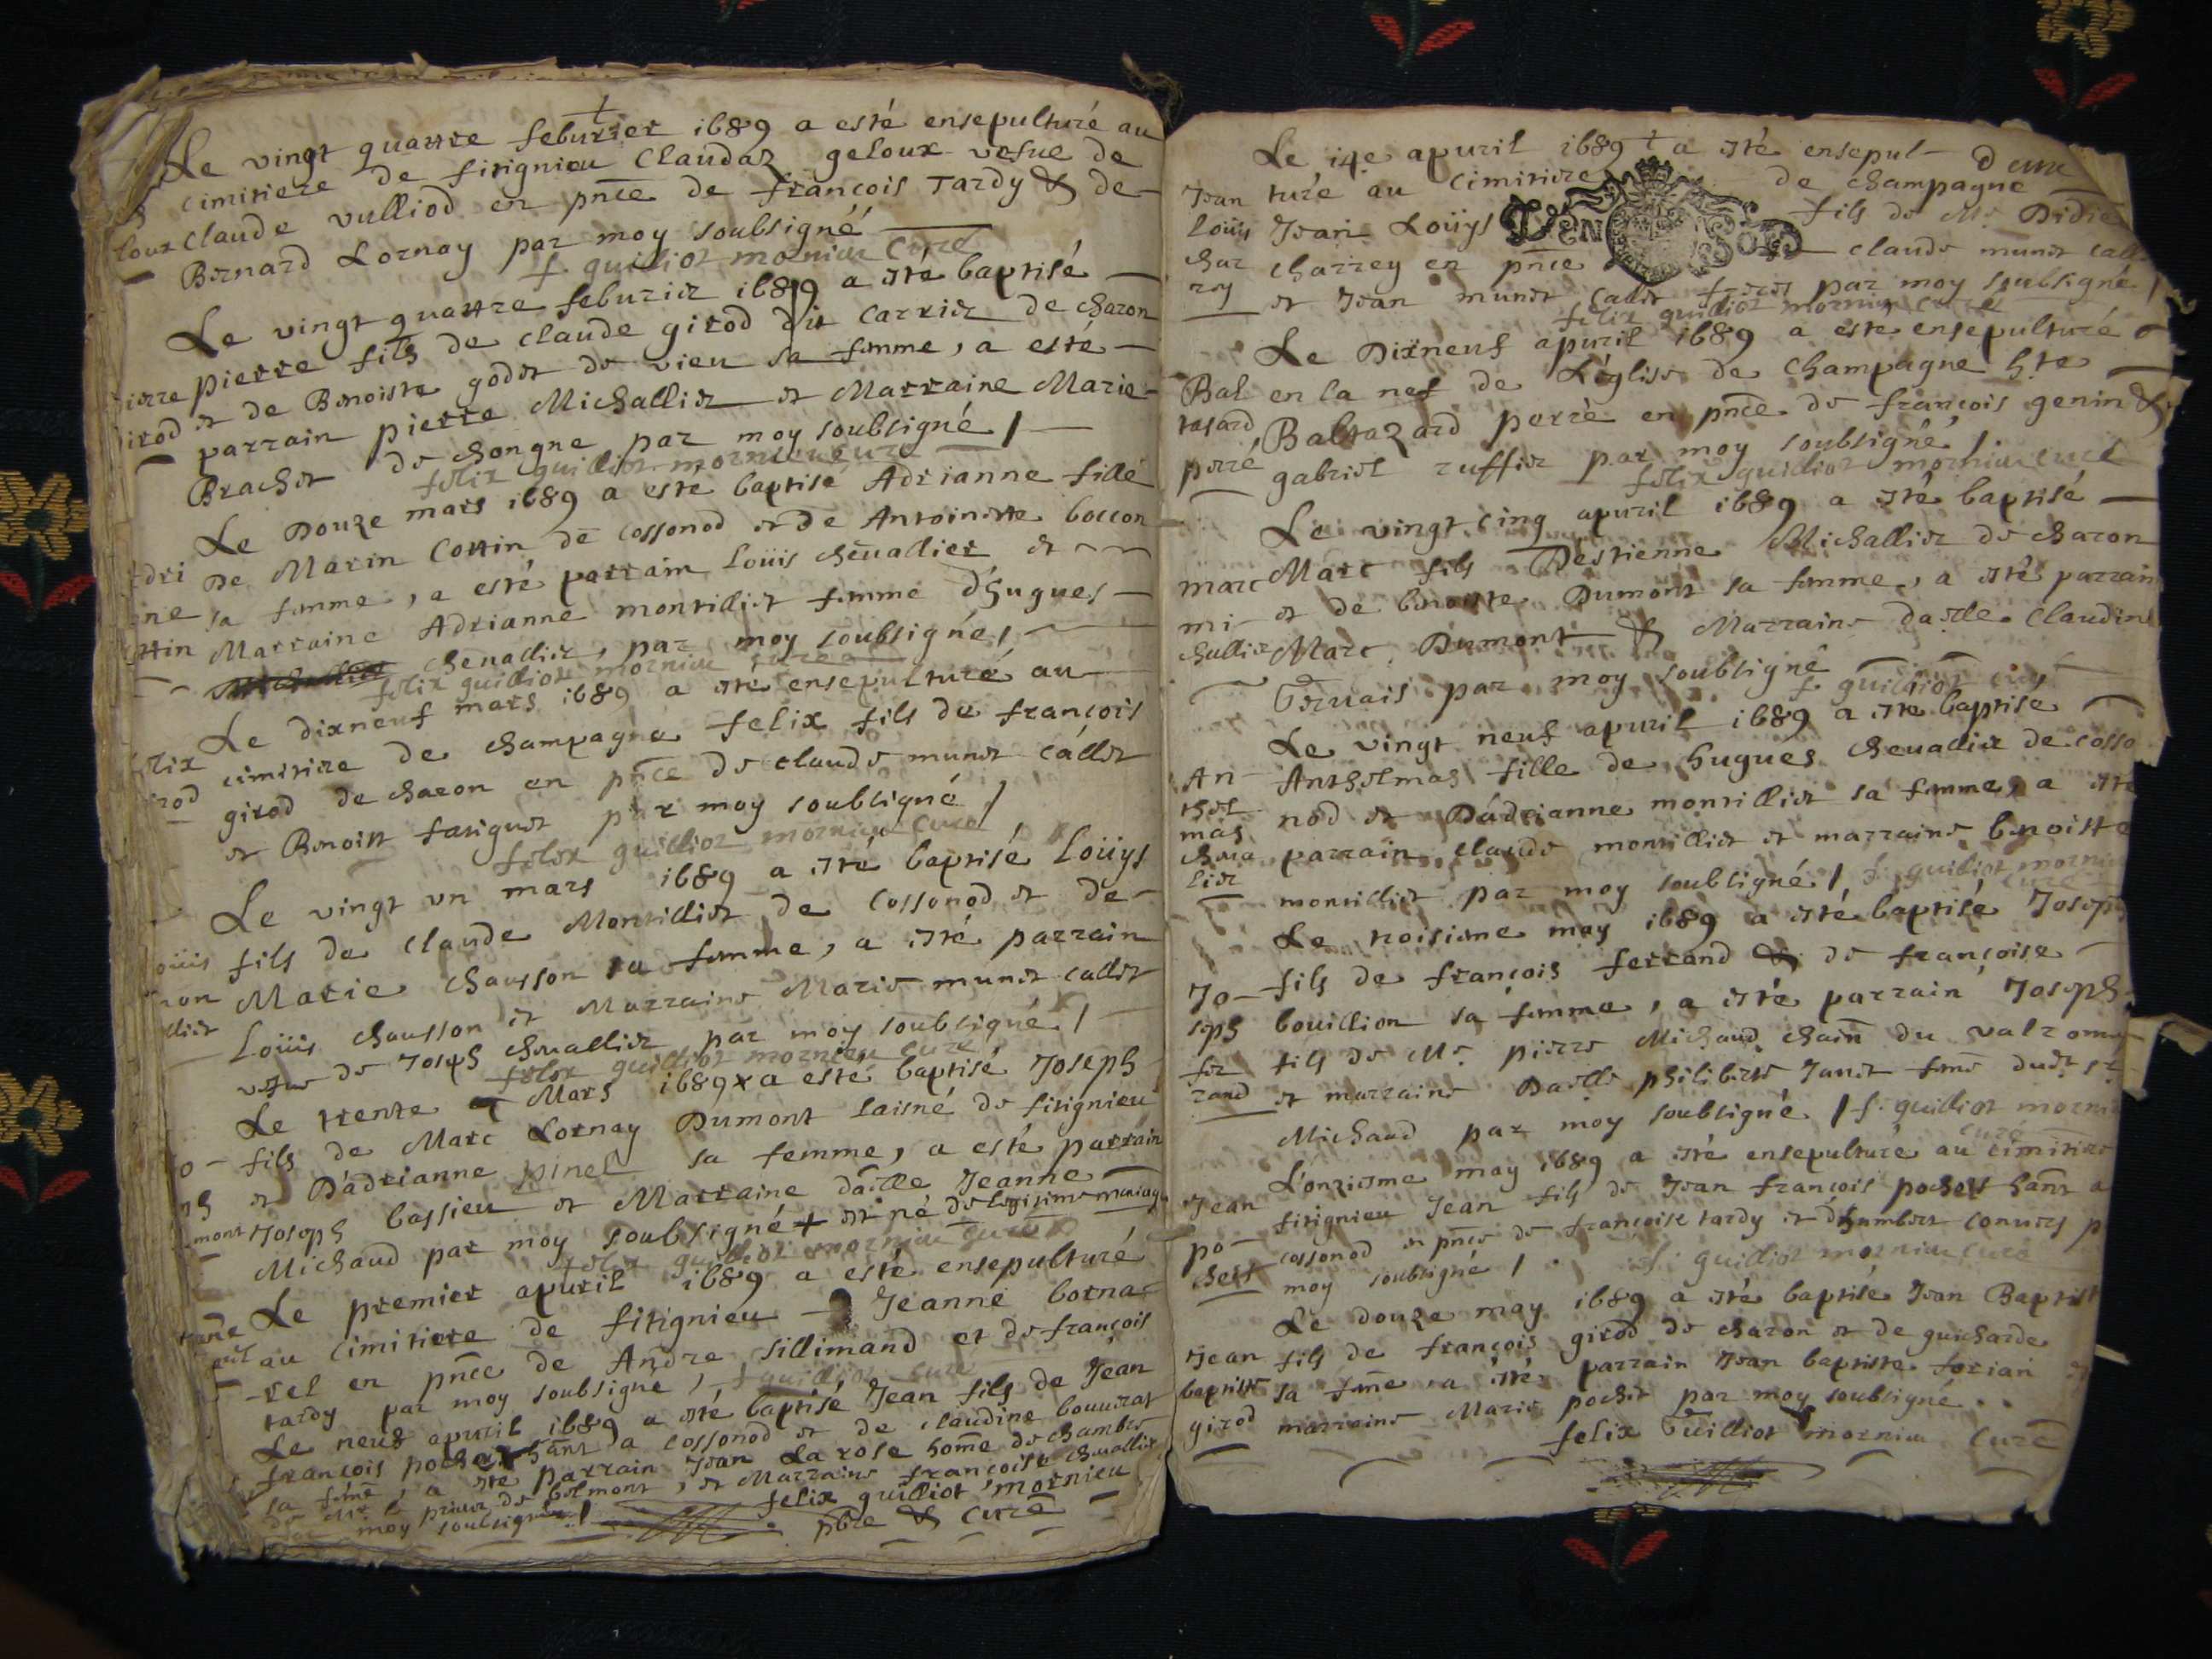 Le vingt quattre feburier 1689 a esté ensepulturé au
cimitiere de fitignieu Claudaz geloux vefue de
loux Claude vulliod en pnce de françois Tardy & de
Bernard Lornay par moy soubsigné
f. guilliot mornieu Curé
Le vingt quattre feburier 1689 a esté baptisé
pierre fils de claude girod dit Carrier de charon
irod et de Benoiste godet de vieu sa femme, a esté
parrain pierre Michallier et Marraine Marie
Brachet de chongne par moy soubsigné /
felix guilliot mornieu curé
Le Douze mars 1689 a esté baptisé Adrianne fille
De Marin Cottin de cossonod et de Antoinette boccon
sa femme, a esté parrain Loüis cheuallier et
ttin Marraine Adrianne montilliet femme d'hugues
cheuallier, par moy soubsigné,
felix guilliot mornieu curé
Le dixneuf mars 1689 a esté ensepulturé au
cimitiere de champagne felix fils de françois
rod girod de charon en pnce de claude munet callet
et Benoist fatiguet par moy soubsigné /
felix guilliot mornieu curé
Le vingt vn mars 1689 a esté baptisé Loüys
fils de claude Montilliet de Cossonod et de
Marie chausson sa femme, a esté parrain
lliet Loüis chausson et Marraine Marie munet callet
vefue de Joseph cheuallier par moy soubsigné /
felix guilliot mornieu curé
Le trente Mars 1689 x a esté baptisé Joseph
fils de Marc Lornay Dumont laisné de fitignieu
et D'adrianne pinel sa femme, a esté parrain
mont Joseph bassieu et Marraine dalle Jeanne
Michaud par moy soubsigné + et né de legitime mariage
felix guilliot mornieu curé
Le premier apuril 1689 a esté ensepulturé
au cimitiere de fitignieu Jeanne borna
-rel en pnce de Andre sillimand et de françois
tardy par moy soubsigné, f guilliot curé
Le neuf apuril 1689 a esté baptisé Jean fils de Jean
françois pochet hant a cossonod et de claudine bouurat
sa feme, a esté parrain Jean La rose home de chambre
de Mr le prieur de belmont, et Marraine françoise cheuallier
moy soubsigné / felix guilliot mornieu
pbre & Curé
Le 14e apuril 1689 + a esté ensepul-
Jean turé au cimitiere de champagne
Loüis Jean Loüys fils de Mr Didie
char charrey en pnce claude munet call
rey et Jean munet callet freres par moy soubsigné /
felix guilliot mornieu curé
Le Dixneuf apuril 1689 a esté ensepulturé
Bal en la nef de L'église de Champagne hte
tasard Baltazard perré en pnce de françois genin &
perré gabriel ruffier par moy soubsigné,
felix guilliot mornieu curé
Le vingt cinq apuril 1689 a esté baptisé
marc Marc fils Destienne Michallier de charon
mi- et de benoiste Dumont sa femme, a esté parrain
challier Marc Dumont & Marraine dalle Claudine
Geruais par moy soubsigné
f guilliot curé
Le vingt neuf apuril 1689 a esté baptisé
An- Anthelmas fille de hugues cheuallier de cosso
thel- nod et D'adrianne montilliet sa femme, a esté
mas
cheua parrain claude montilliet et marraine benoiste
lier montilliet par moy soubsigné / f guilliot mornieu
curé
Le troisieme may 1689 a esté baptisé Joseph
Jo- fils de françois ferrand & de françoise
seph bouillion sa femme, a esté parrain Joseph
fer fils de Mr pierre Michaud chain du valrome
rand et marraine Dalle philiberte Janet feme dudt sr
Michaud par moy soubsigné / f. guilliot mornieu
curé
L'onzieme may 1689 a esté ensepulturé au cimitiere
Jean fitignieu Jean fils de Jean françois pochet hant a
po- cossonod en pnce de françoise tardy et d'humbert conuers p
chet moy soubsigné / f. guilliot mornieu curé
Le douze may 1689 a esté baptisé Jean Baptist
Jean fils de françois girod de charon et de guicharde
baptiste sa feme a esté parrain Jean baptiste forian
girod marraine Marie pochet par moy soubsigné.
felix Guilliot mornieu Curé